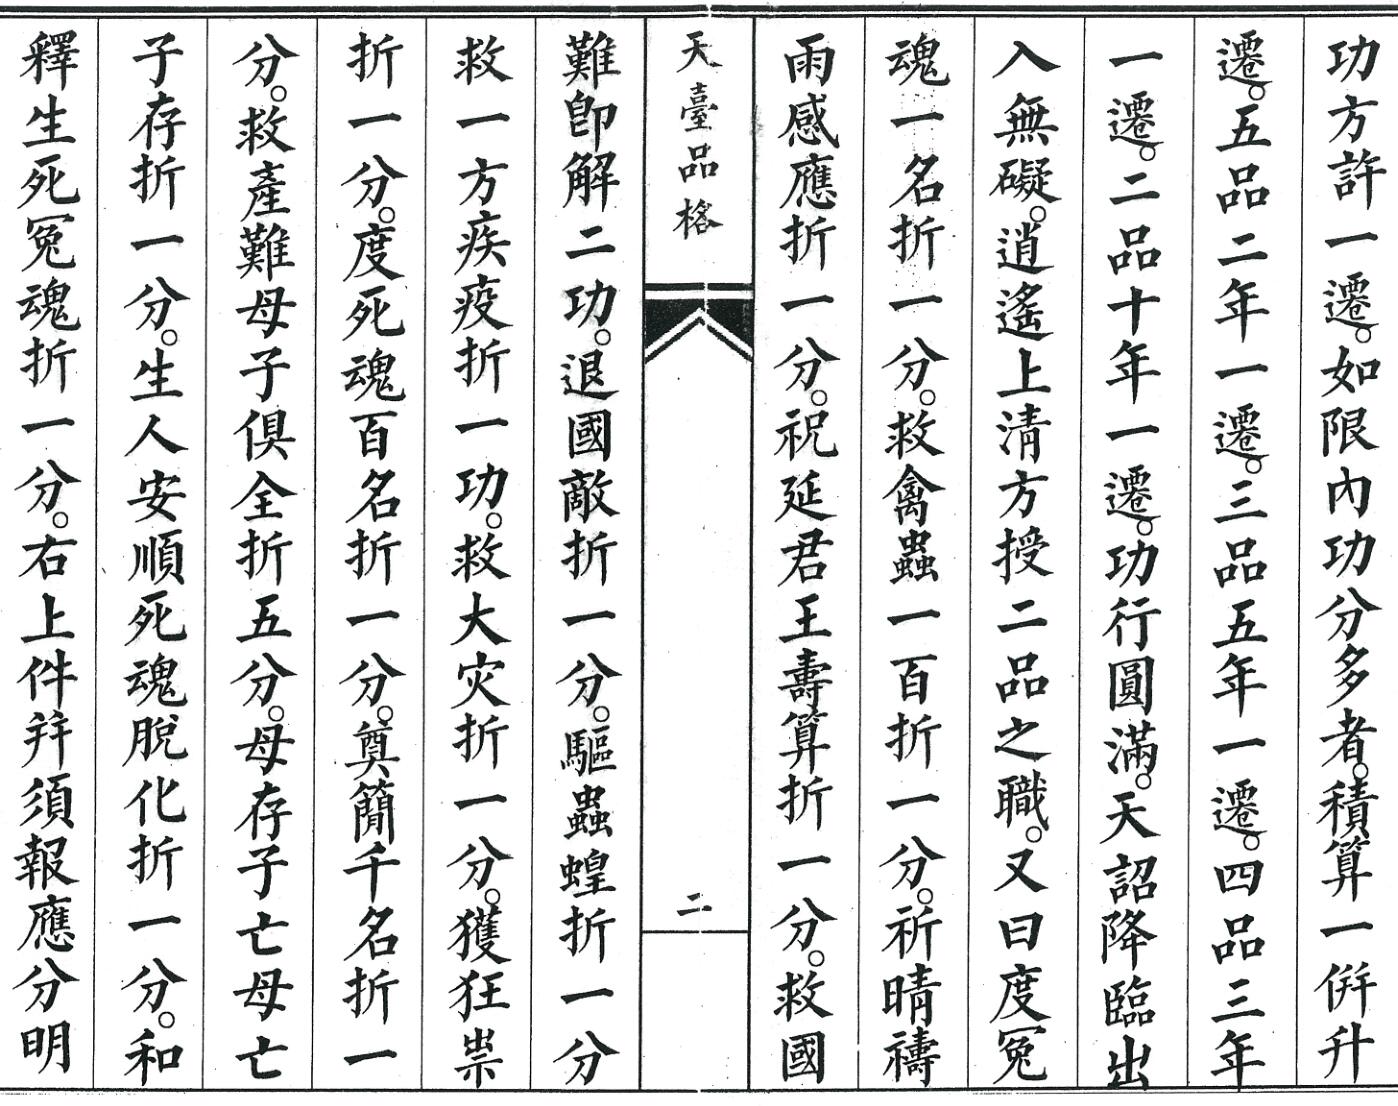 功方許一遷。如限內功分多者。積算一併升
遷。五品二年一遷。三品五年一遷。四品三年
一遷。二品十年一遷。功行圓滿。天詔降臨出
入無礙。逍遙上清方授二品之職。又曰度冤
魂一名折一分。救禽蟲一百折一分。祈晴禱
雨感應折一分。祝延君王壽算折一分。救國
天臺品格
二
難卽解二功。退國敵折一分。驅蟲蝗折一分
救一方疾疫折一功。救大灾折一分。獲狂祟
折一分。度死魂百名折一分。奠簡千名折一
分。救產難母子俱全折五分。母存子亡母亡
子存折一分。生人安順死魂脫化折一分。和
釋生死冤魂折一分。右上件并須報應分明